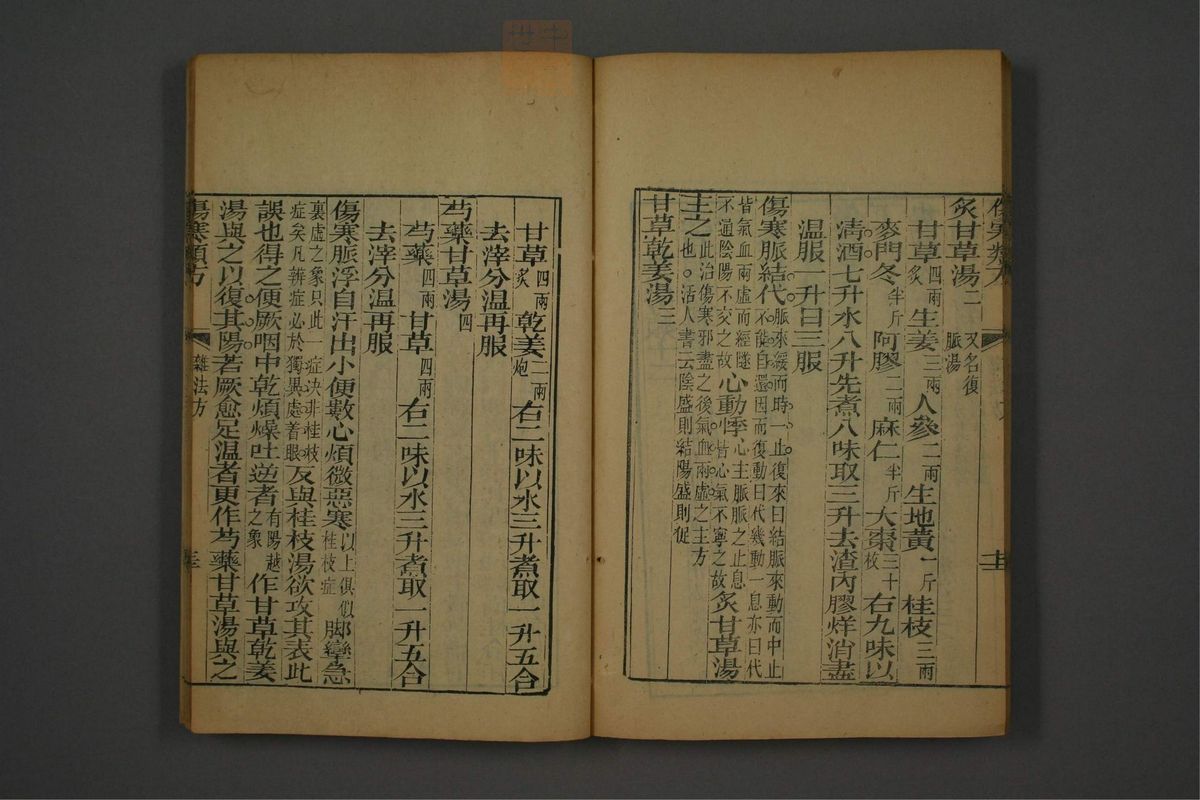 炙甘草湯二 又名復脈湯
甘草四兩炙 生姜三兩 人參二兩 生地黃一斤 桂枝三兩
麥門冬半斤 阿膠二兩 麻仁半斤 大棗三十枚 右九味以
清酒七升水八升先煮八味取三升去渣內膠烊消盡
溫服一升日三服
傷寒脈結代脈來緩而時一止復來曰結脈來動而中止不能自還因而復動曰代幾動一息亦曰代
皆氣血兩虛而經隧不通陰陽不交之故心動悸心主脈脈之止息皆心氣不寧之故炙甘草湯
主之此治傷寒邪盡之後氣血兩虛之主方也。活人書云陰盛則結陽盛則促
甘草乾姜湯三
甘草四兩炙 乾姜二兩炮 右二味以水三升煮取一升五合
去滓分温再服
芍藥甘草湯四
芍藥四兩 甘草四兩 右二味以水三升煮取一升五合
去滓分温再服
傷寒脈浮自汗出小便數心煩微惡寒以上俱似桂枝症脚攣急
裏虛之象只此一症决非桂枝症矣凡辨症必於獨異處着眼反與桂枝湯欲攻其表此
誤也得之便厥咽中乾煩燥吐逆者有陽越之象作甘草乾姜
湯與之以復其陽若厥愈足温者更作芍藥甘草湯與之
傷寒類方 雜法方